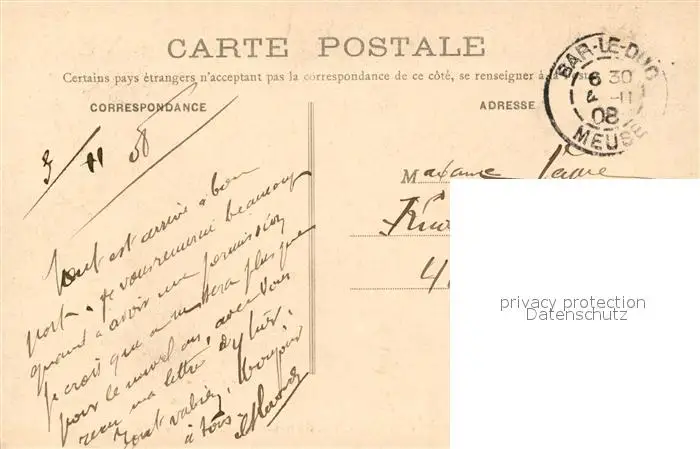 CARTE POSTALE
Certains pays étrangers n'acceptant pas la correspondance de ce côté, se renseigner à la Poste
CORRESPONDANCE
ADRESSE
BAR-LE-DUC
6 30
4 -11
08
MEUSE
3/11 08
Madame
Tout est arrivé à bon
port. Je vous remercie beaucoup
quant à avoir une permission
je crois que ce ne sera plus que
pour le nouvel an, avez vous
reçu ma lettre d'hier.
Tout va bien, bonjour
à tous
privacy protection
Datenschutz